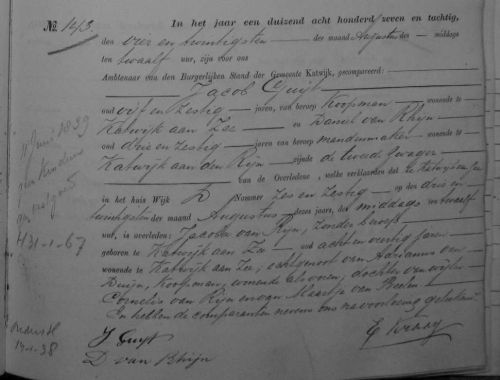 No. 143.
In het jaar een duizend acht honderd zeven en tachtig,
den vier en twintigsten der maand Augustus des middags
ten twaalf uur, zijn voor ons
Ambtenaar van den Burgerlijken Stand der Gemeente Katwijk, gecompareerd:
Jacob Guijt
oud vijf en zestig jaren, van beroep Koopman wonende te
Katwijk aan Zee en Daniel van Rhijn
oud drie en zestig jaren van beroep mandenmaker wonende te
Katwijk aan den Rijn zijnde de tweede zwager
van de Overledene, welke verklaarden dat te Katwijk aan Zee
in het huis Wijk D Nommer zes en zestig op den drie en
twintigsten der maand Augustus dezes jaars, des middags ten twaalf
uur, is overleden: Jacoba van Rijn, zonder beroep
geboren te Katwijk aan Zee oud acht en veertig jaren
wonende te Katwijk aan Zee, echtgenoot van Adrianus van
Duijn, Koopman, wonende alvoren, dochter van wijlen
Cornelis van Rijn en van Maartje van Beelen
En hebben de comparanten nevens ons na voorlezing geteekend
J Guyt
D van Rhijn
11 Juni 1839
31-1-67
14-1-38